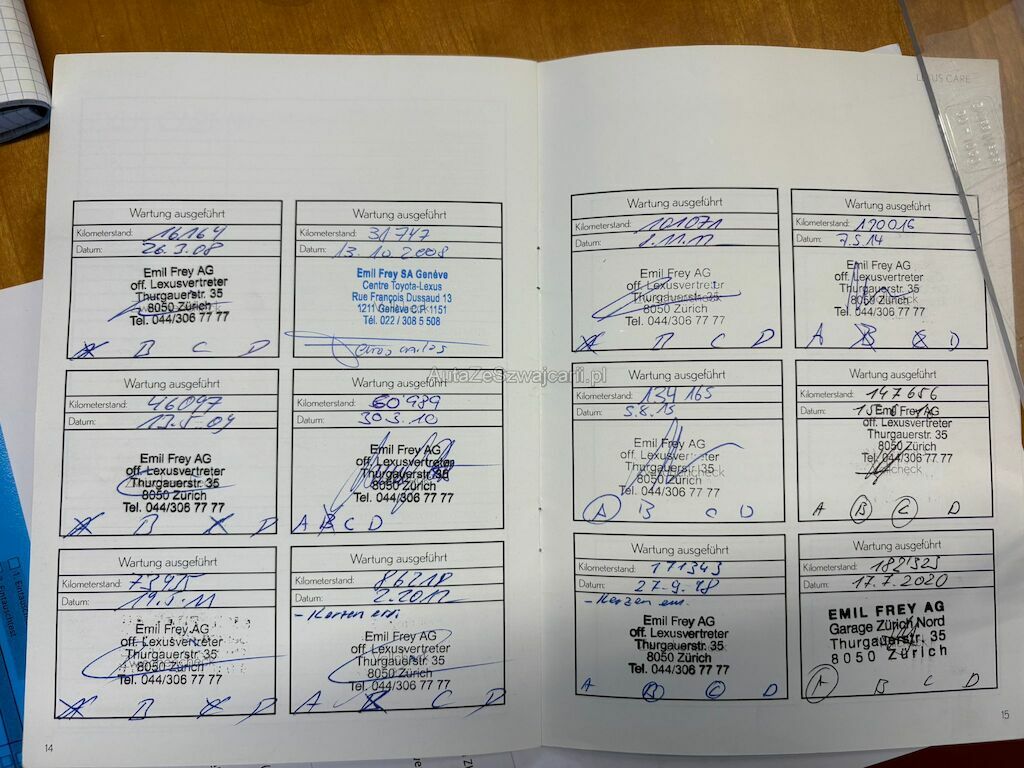 LEXUS CARE
Wartung ausgeführt
Kilometerstand: 16164
Datum: 26.3.08
Emil Frey AG
off. Lexusvertreter
Thurgauerstr. 35
8050 Zürich
Tel. 044/306 77 77
A B C D
Wartung ausgeführt
Kilometerstand: 31747
Datum: 13.10.2008
Emil Frey SA Genève
Centre Toyota-Lexus
Rue François Dussaud 13
1211 Genève C.P. 1151
Tél. 022 / 308 5 508
Wartung ausgeführt
Kilometerstand: 46097
Datum: 13.5.09
Emil Frey AG
off. Lexusvertreter
Thurgauerstr. 35
8050 Zürich
Tel. 044/306 77 77
A B C D
Wartung ausgeführt
Kilometerstand: 60989
Datum: 30.3.10
Emil Frey AG
off. Lexusvertreter
Thurgauerstr. 35
8050 Zürich
Tel. 044/306 77 77
A B C D
Wartung ausgeführt
Kilometerstand: 73915
Datum: 19.5.11
Emil Frey AG
off. Lexusvertreter
Thurgauerstr. 35
8050 Zürich
Tel. 044/306 77 77
A B C D
Wartung ausgeführt
Kilometerstand: 86218
Datum: 2.2012
Emil Frey AG
off. Lexusvertreter
Thurgauerstr. 35
8050 Zürich
Tel. 044/306 77 77
A B C D
14
Wartung ausgeführt
Kilometerstand: 101071
Datum:
Emil Frey AG
off. Lexusvertreter
Thurgauerstr. 35
8050 Zürich
Tel. 044/306 77 77
A B C D
Wartung ausgeführt
Kilometerstand: 120016
Datum: 7.5.14
Emil Frey AG
off. Lexusvertreter
Thurgauerstr. 35
8050 Zürich
Tel. 044/306 77 77
A B C D
Wartung ausgeführt
Kilometerstand: 134165
Datum: 5.8.15
Emil Frey AG
off. Lexusvertreter
Thurgauerstr. 35
8050 Zürich
Tel. 044/306 77 77
A B C D
Wartung ausgeführt
Kilometerstand: 147656
Datum:
Emil Frey AG
off. Lexusvertreter
Thurgauerstr. 35
8050 Zürich
Tel. 044/306 77 77
A B C D
Wartung ausgeführt
Kilometerstand: 171343
Datum: 27.9.18
- Kerzen ern.
Emil Frey AG
off. Lexusvertreter
Thurgauerstr. 35
8050 Zürich
Tel. 044/306 77 77
A B C D
Wartung ausgeführt
Kilometerstand: 182323
Datum: 17.7.2020
EMIL FREY AG
Garage Zürich Nord
Thurgauerstr. 35
8050 Zürich
A B C D
15
AutaZeSzwajcarii.pl